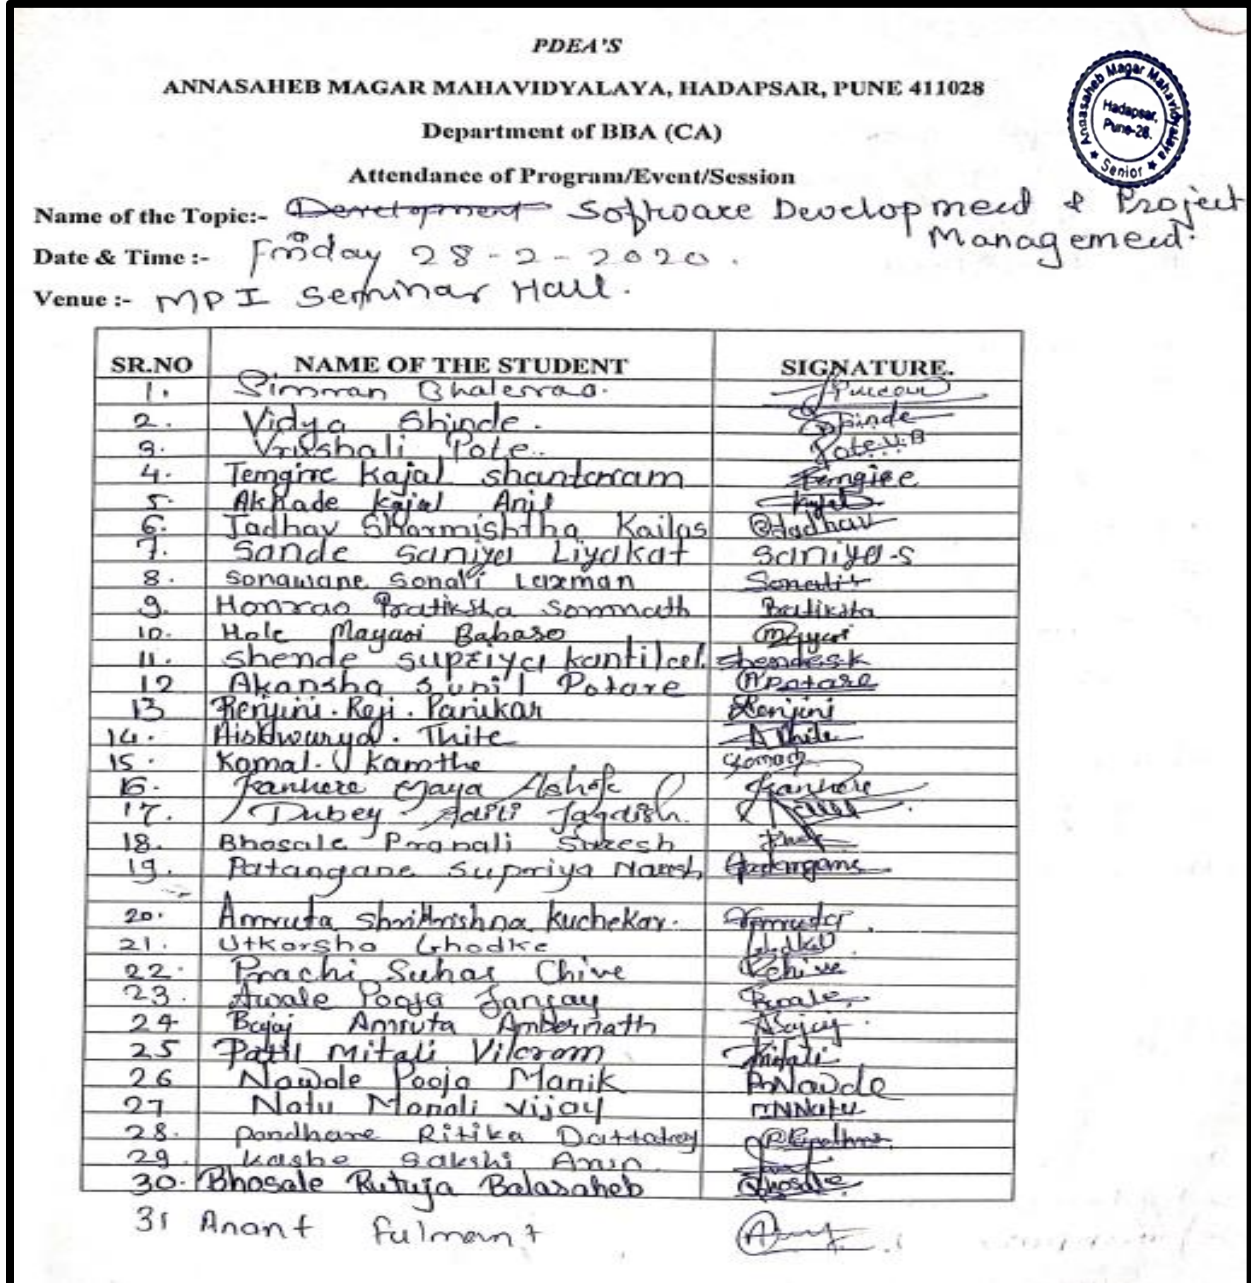 PDEA'S
ANNASAHEB MAGAR MAHAVIDYALAYA, HADAPSAR, PUNE 411028
Annasaheb Magar Mahavidyalaya
Hadapsar,
Pune-28.
Senior
Department of BBA (CA)
Attendance of Program/Event/Session
Name of the Topic:- Development Software Development & Project
Management.
Date & Time :- Friday 28-2-2020.
Venue :- MPI Seminar Hall.
SR.NO NAME OF THE STUDENT SIGNATURE.
1. Simran Bhalerao.
2. Vidya Shinde. Shinde
3. Vrushali Pote.. Pote V.B
4. Temgire Kajal shantaram Temgire
5. Akhade kajal Anil Kajal
6. Jadhav Sharmishtha Kailas Jadhav
7. Sande saniya Liyakat saniya-s
8. sonawane sonali Laxman Sonali
9. Honrao Pratiksha Somnath Pratiksha
10. Hole Mayuri Babaso Mayuri
11. shende supriya kantilal. shende s.k
12 Akansha sunil Potare Apotare
13 Renjini. Reji. Panikar Renjini
14. Aishwarya. Thite A Thite
15. Komal. J kamthe Komal
16. Kanhere Maya Ashok Kanhere
17. Dubey Aditi Jagdish.
18. Bhosale Pranali Suresh
19. Patangane Supriya Naresh Patangane
20. Amruta shrikrishna kuchekar. Amruta
21. Utkarsha Ghodke Ghodke
22. Prachi Suhas Chive Pchive
23. Awale Pooja Sanjay Awale
24 Bajaj Amruta Ambernath Abajaj
25 Patil Mitali Vikram Mitali
26 Nawale Pooja Manik
27 Natu Monali vijay MNNatu
28. pandhare Ritika Dattatray
29 kashe sakshi
30. Bhosale Rutuja Balasaheb Bhosale
31 Anant fulmant